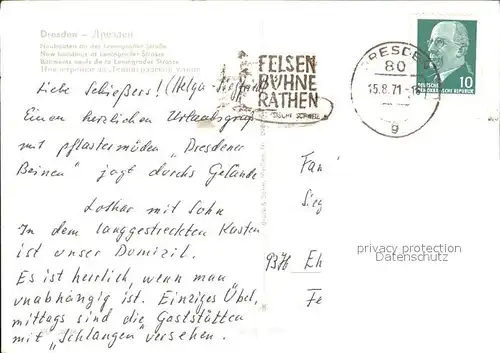 Dresden – Дрезден
Neubauten an der Leningrader Straße
New buildings at Leningrader Strasse
Bâtiments neufs de la Leningrader Strasse
FELSEN
BÜHNE
RATHEN
SÄCHS. SCHWEIZ
DRESDEN
80
15.8.71
g
10
DEUTSCHE DEMOKRATISCHE REPUBLIK
Liebe Schießers! (Helga
Einen herzlichen Urlaubsgruß
mit pflastermüden „Dresdener
Beinen" jagt durchs Gelände
Lothar mit Sohn
In dem langgestreckten Kasten
ist unser Domizil.
Es ist herrlich, wenn man
unabhängig ist. Einziges Übel,
mittags sind die Gaststätten
mit „Schlangen" versehen.
Fam
Sieg
9376 Eh
Fe
privacy protection
Datenschutz